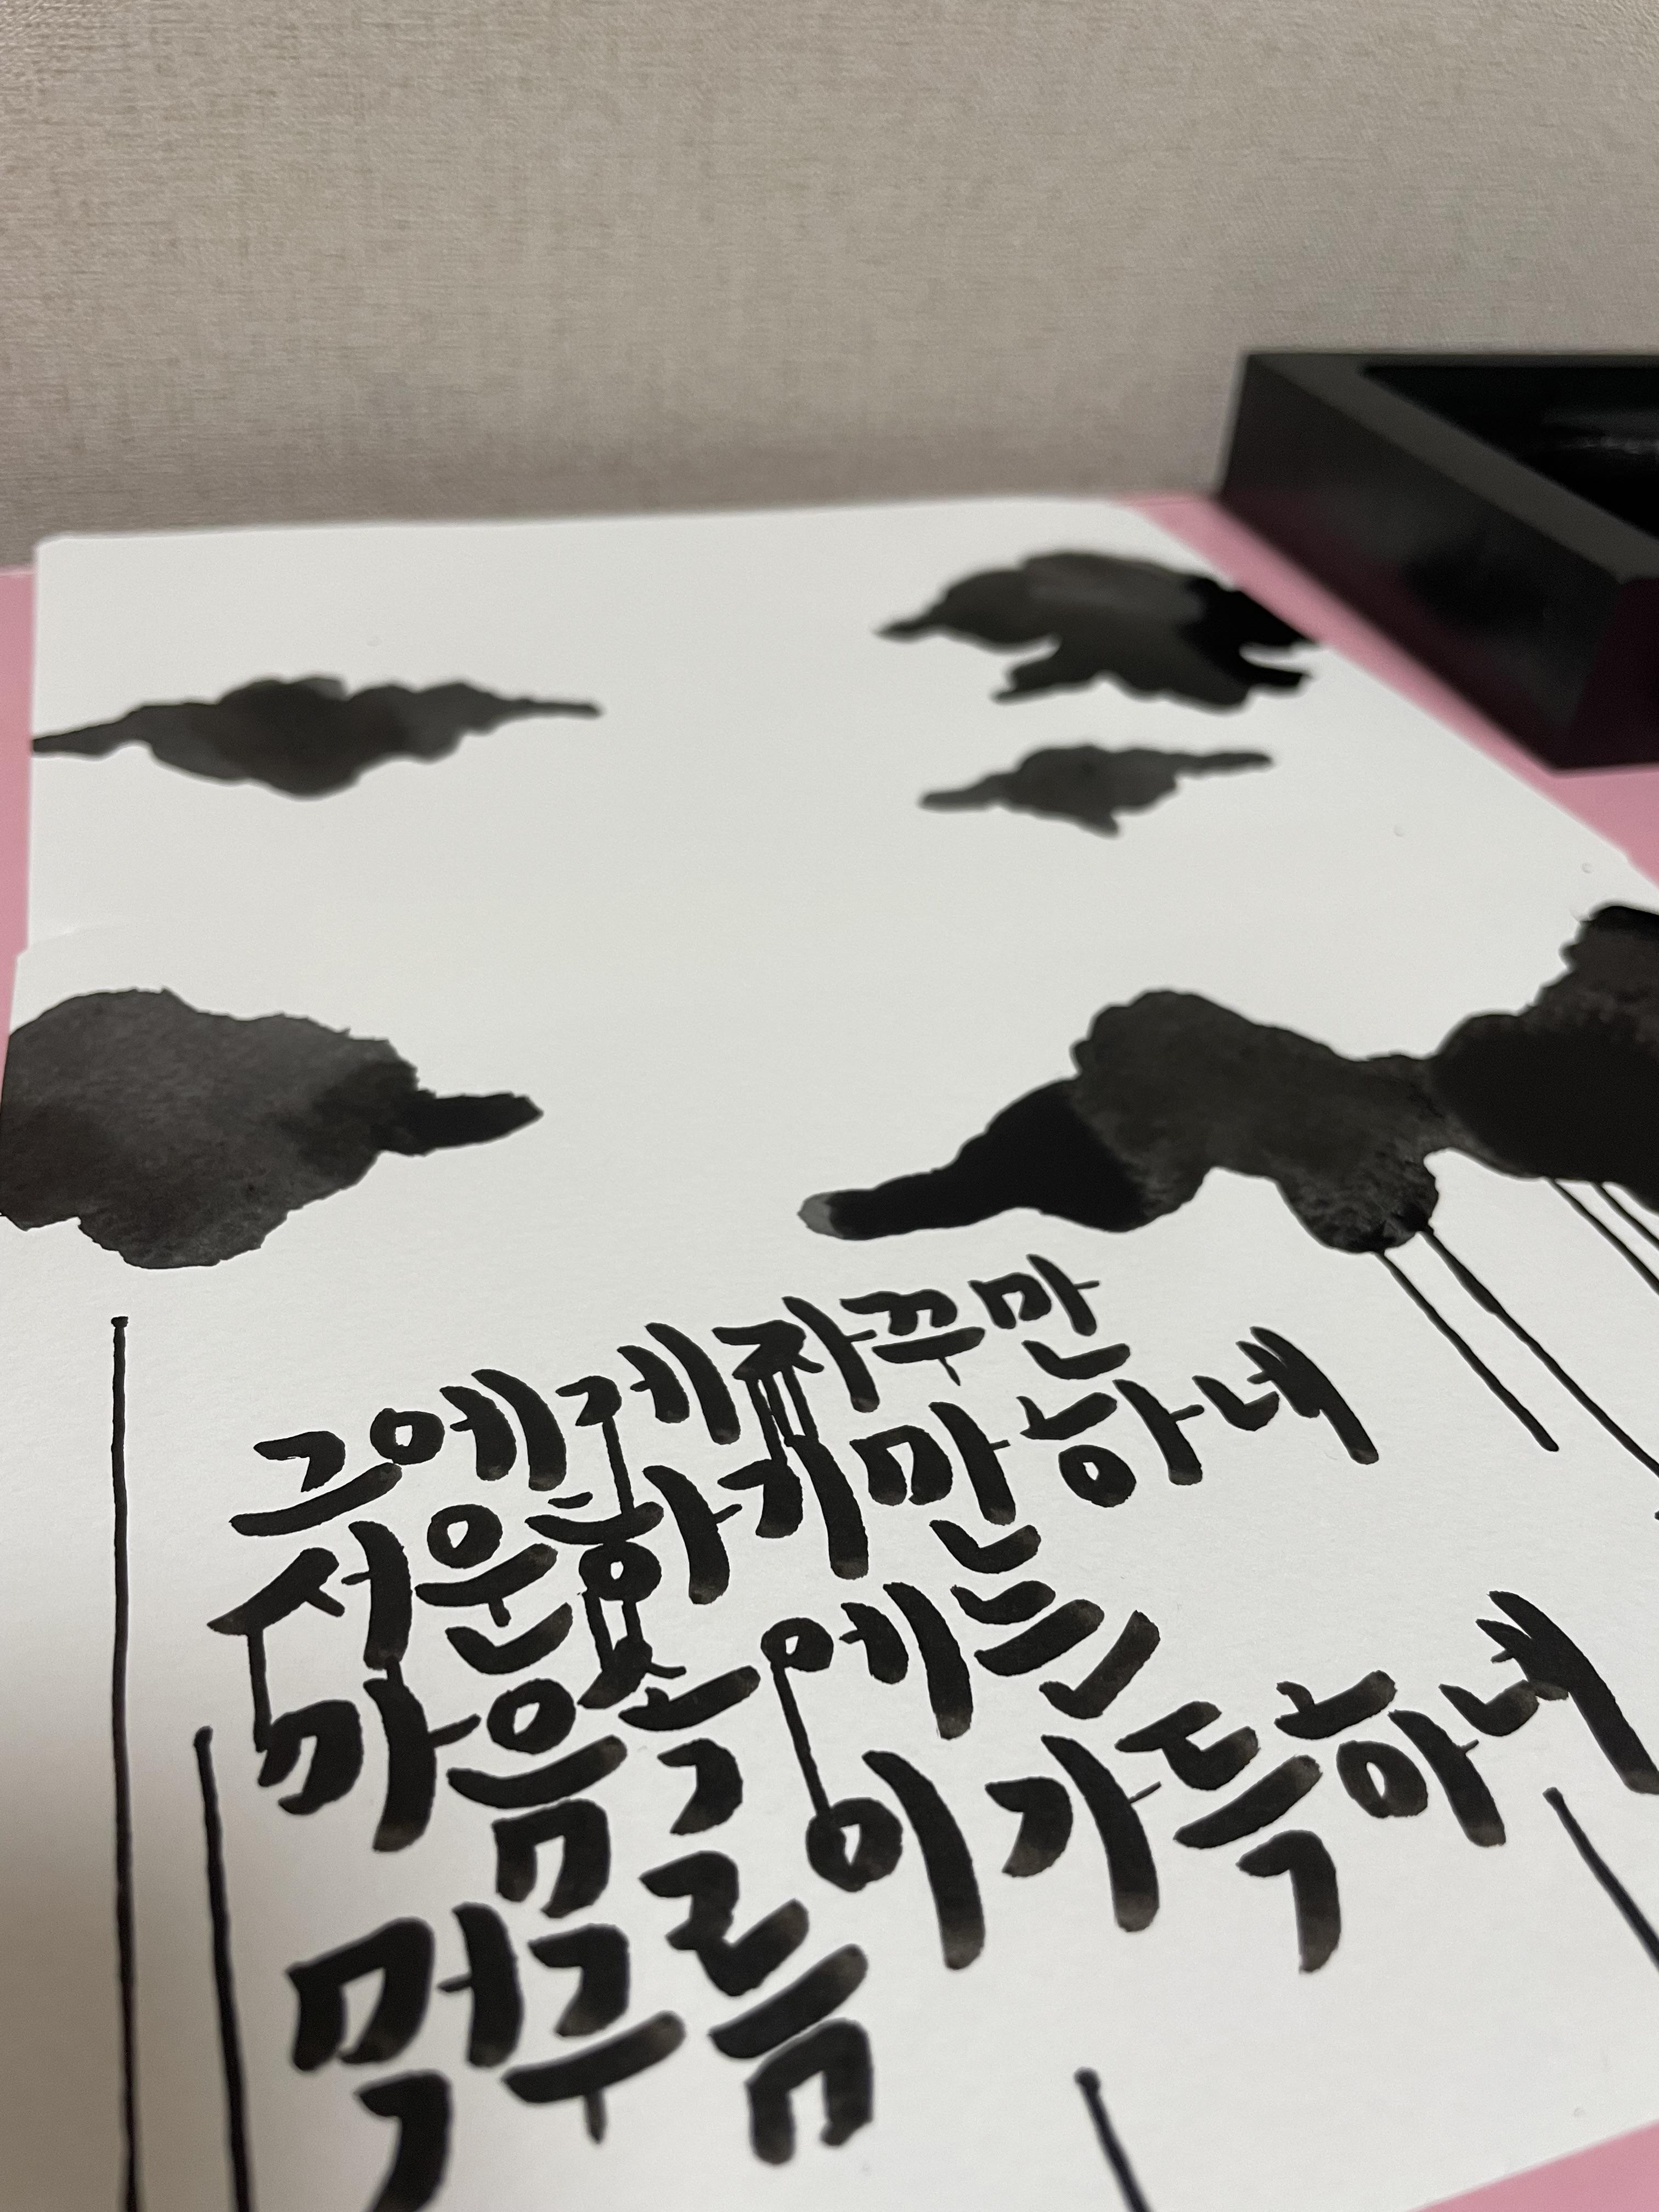 그에게 자꾸만
서운하기만 하네
마음속에는
먹구름이 가득하네